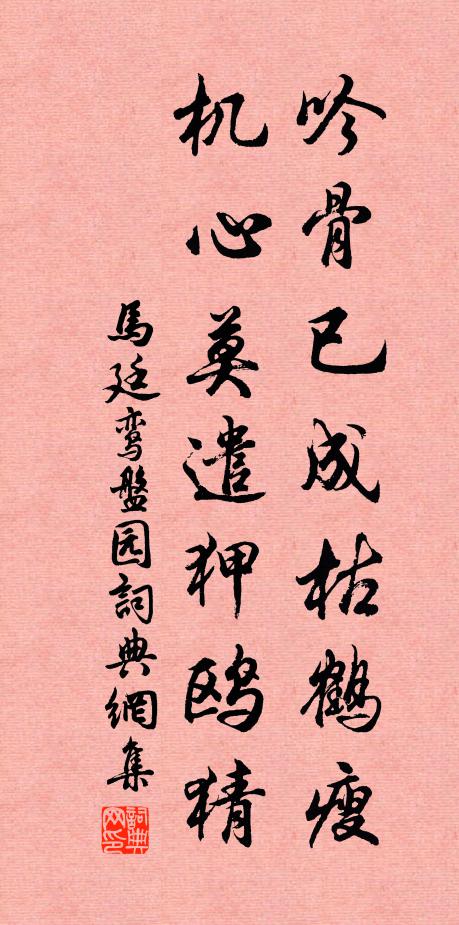 吟骨已成枯鹤瘦
机心莫遣狎鸥猜
馬廷鸾盤园詞典網集
詞典网印